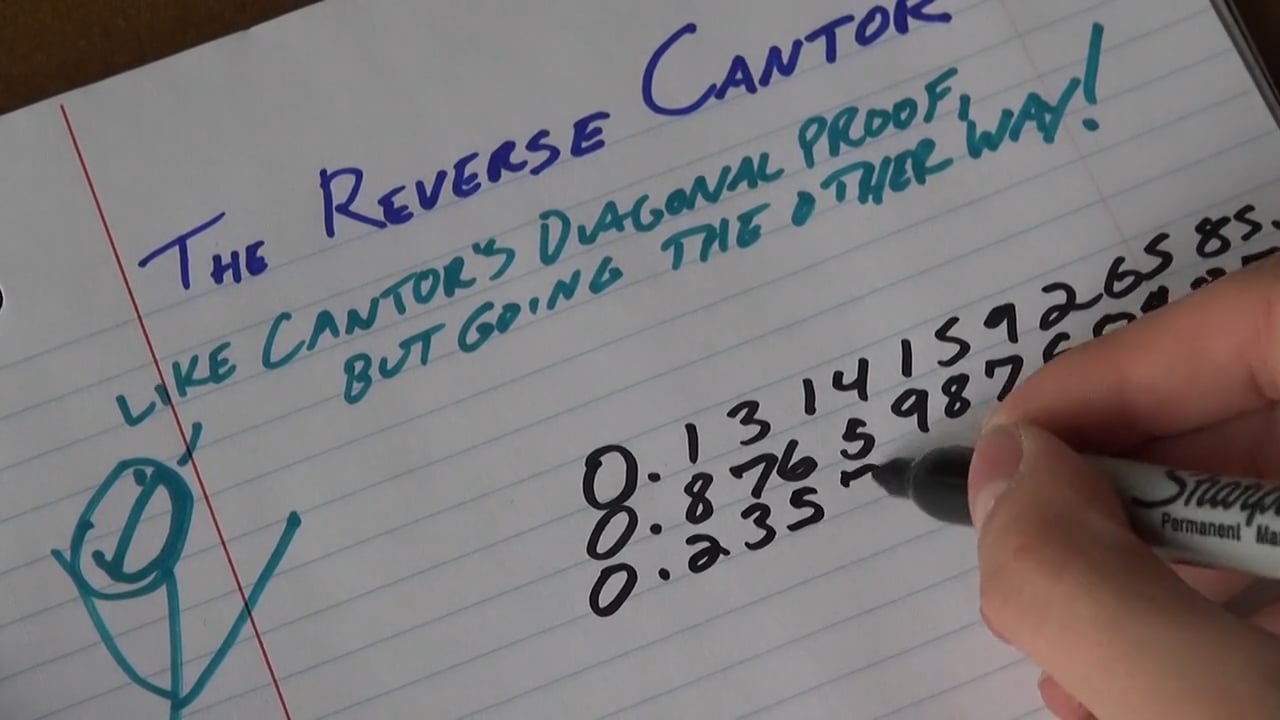 THE REVERSE CANTOR
LIKE CANTOR'S DIAGONAL PROOF,
BUT GOING THE OTHER WAY!
0.1314159265 85
0.8765987
0.235
Sharp
Permanent Ma